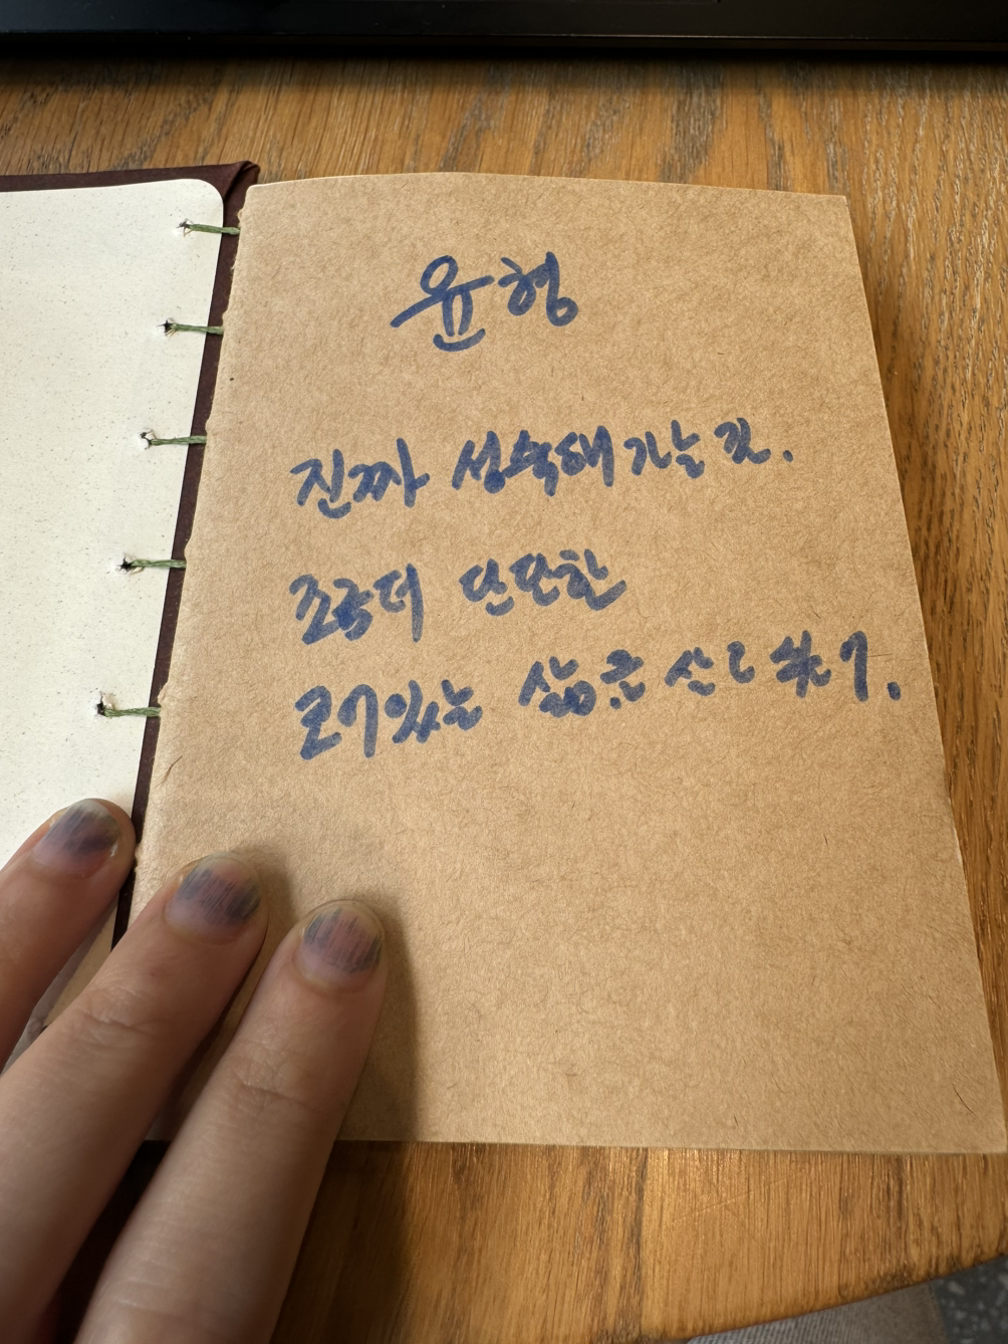 윤형
진짜 성숙해 가는 것.
조금 더 단단한
용기있는 삶을 산 후기.